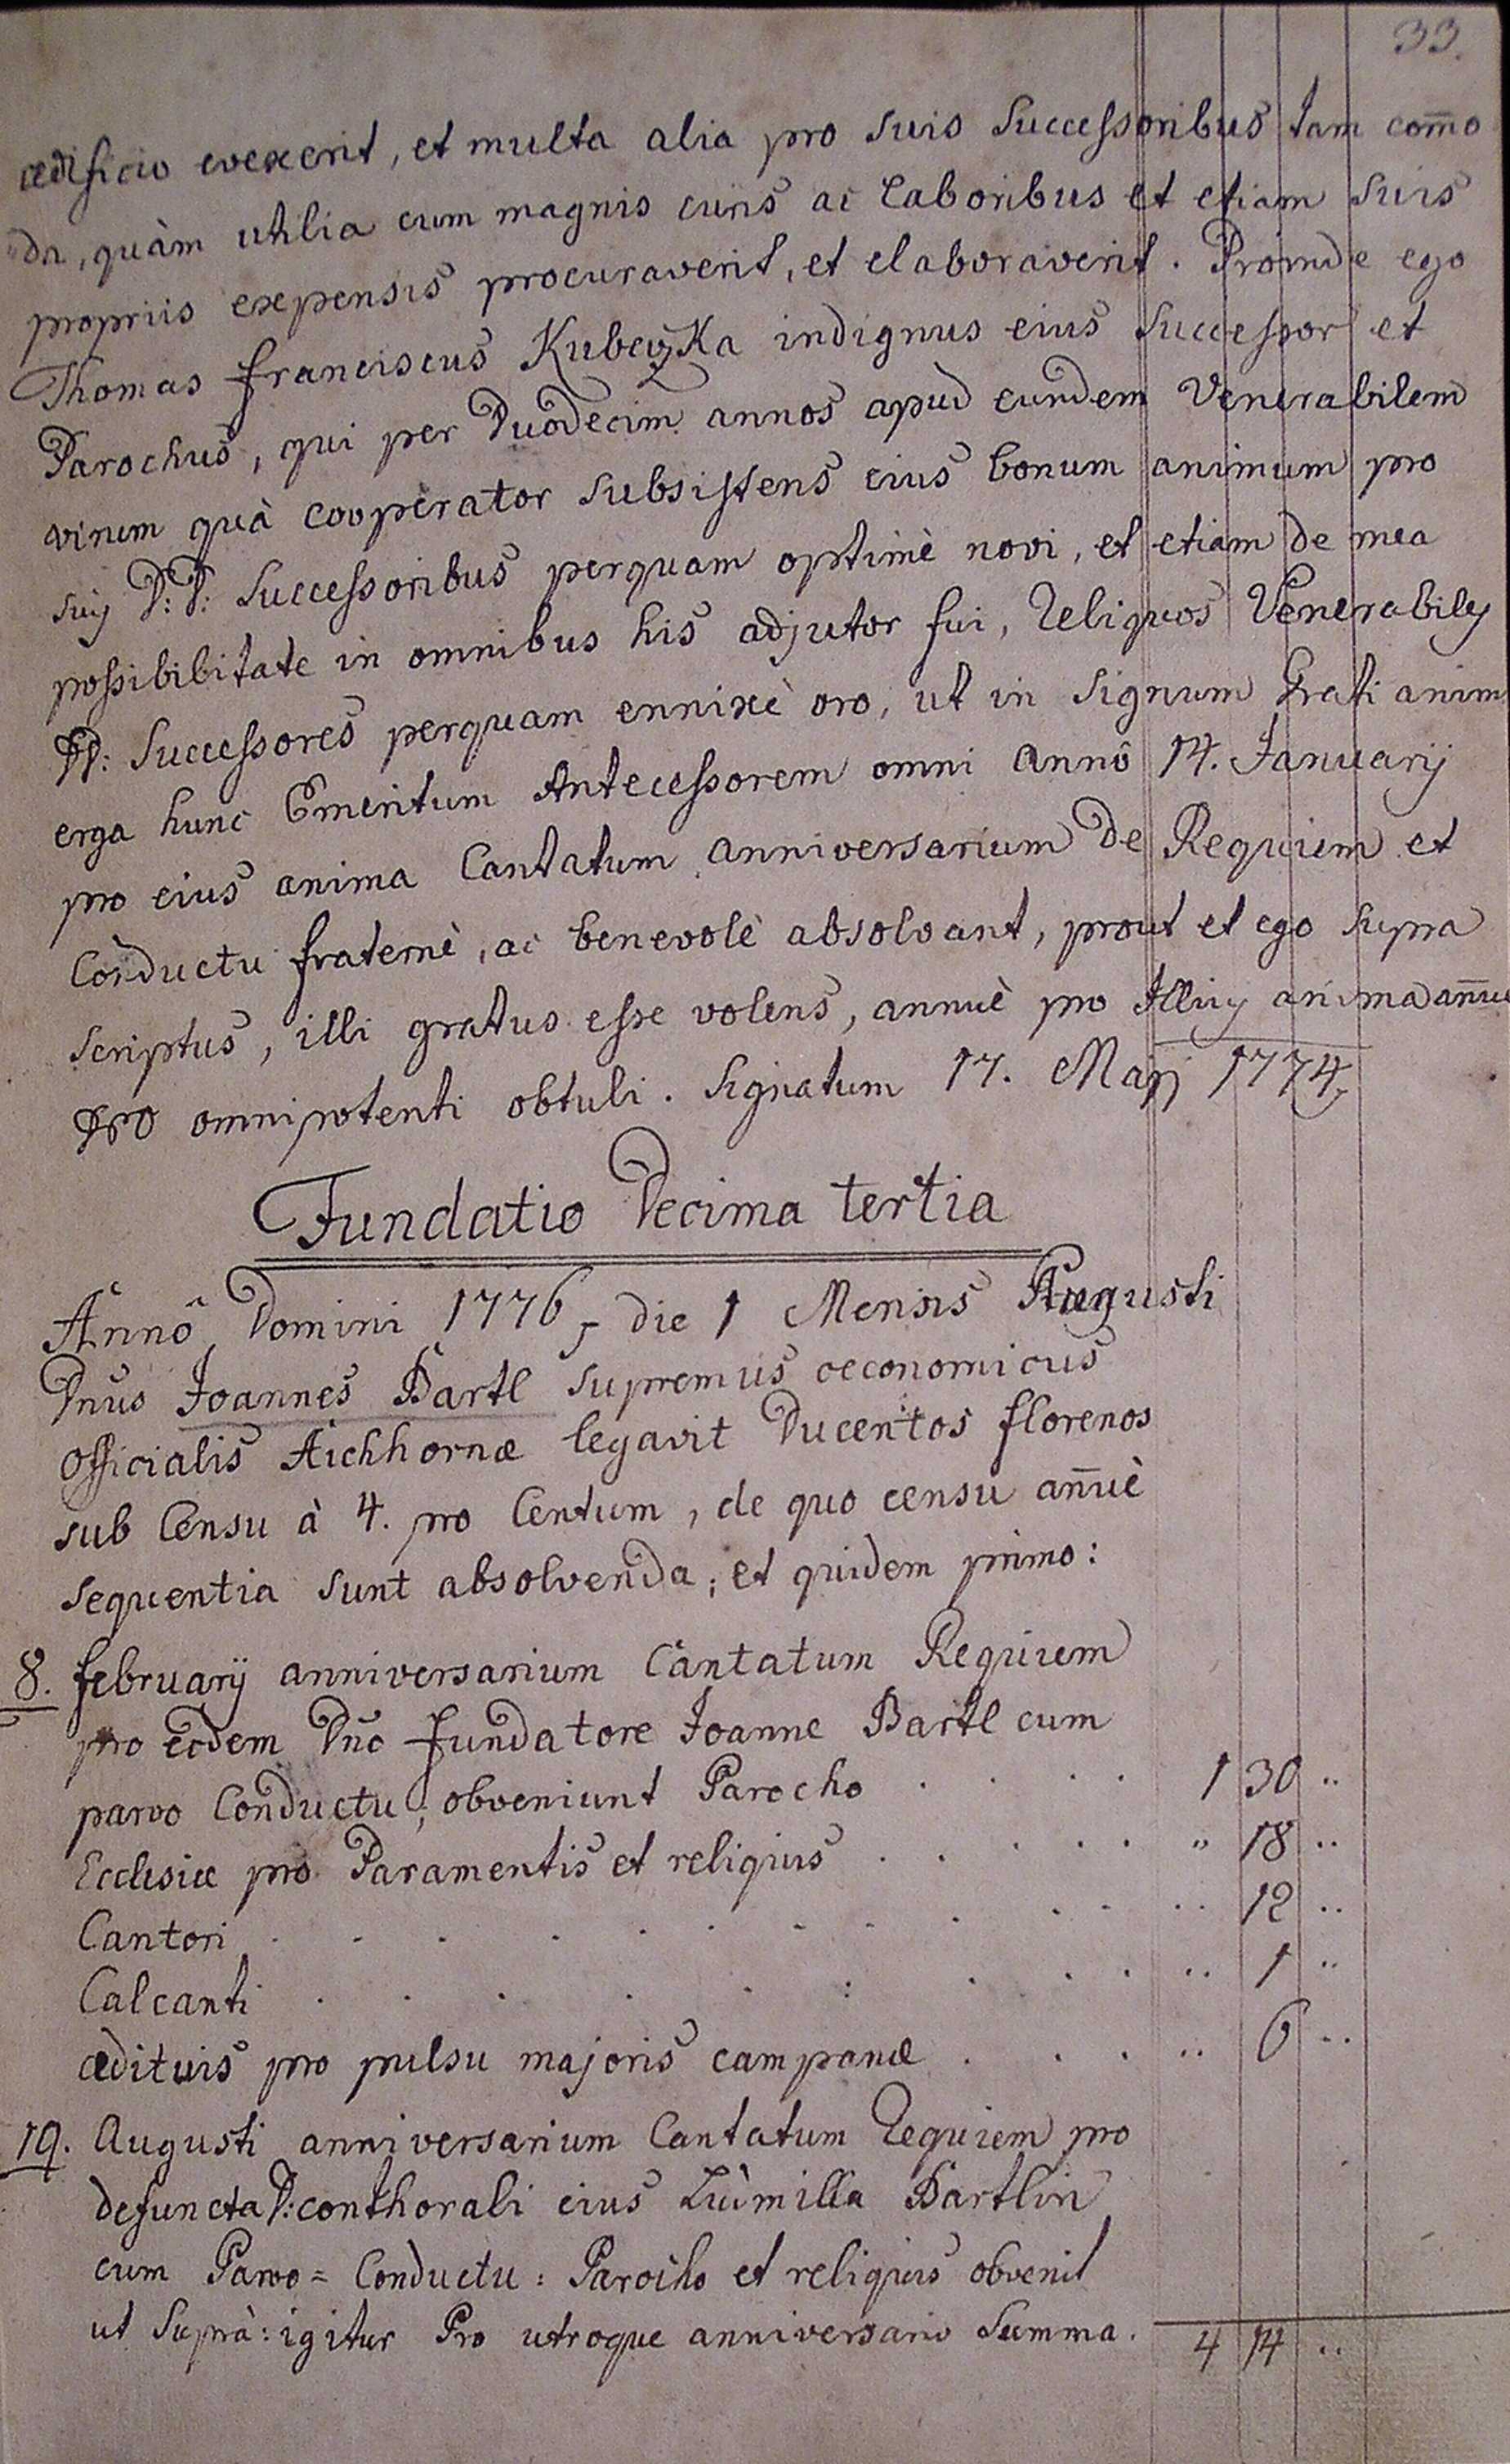 33.
ædificio evexerit, et multa alia pro suis Successoribus tam com̄o
da, quàm utilia cum magnis curis ac laboribus et etiam suis
propriis expensis procuraverit, et elaboraverit. Proinde ego
Thomas Franciscus Kubeczka indignus eius Successor et
Parochus, qui per Duodecim annos apud eundem Venerabilem
virum quà cooperator subsistens eius bonum animum pro
suis D:D: Successoribus perquam optimè novi, et etiam de mea
possibilitate in omnibus his adjutor fui, Reliquos Venerabiles
DD: Successores perquam ennixè oro, ut in signum Grati anim
erga hunc Emeritum Antecessorem omni annô 14. Januarij
pro eius anima Cantatum anniversarium de Requiem et
Conductu fraternè, ac benevolè absolvant, prout et ego supra
scriptus, illi gratus esse volens, annuè pro Illius anima
omnipotenti obtuli. Signatum 17. Maji 1774
Fundatio Decima tertia
Annô Domini 1776, die 1 Mensis Augusti
Dnus Joannes Bartl supremus oeconomicus
officialis Aichhornæ legavit Ducentos florenos
sub Censu à 4. pro Centum, de quo censu an̄uè
sequentia sunt absolvenda; et quidem primo:
8. februarij anniversarium Cantatum Requiem
pro eodem Dño fundatore Joanne Bartl cum
parvo Conductu, obveniunt Parocho . . . . 1 30 ..
Ecclesiæ pro Paramentis et reliquis . . . . . " 18 ..
Cantori . . . . . . . . . . .. 12 ..
Calcanti . . . . . : . . . .. 1 ..
ædituis pro pulsu majoris campanæ . . . .. 6 ..
19. Augusti anniversarium Cantatum Requiem pro
defuncta D: conthorali eius Ludmilla Bartlin
cum Parvo = Conductu: Parocho et reliquis obvenit
ut Suprà: igitur Pro utroque anniversario Summa. 4 14 ..